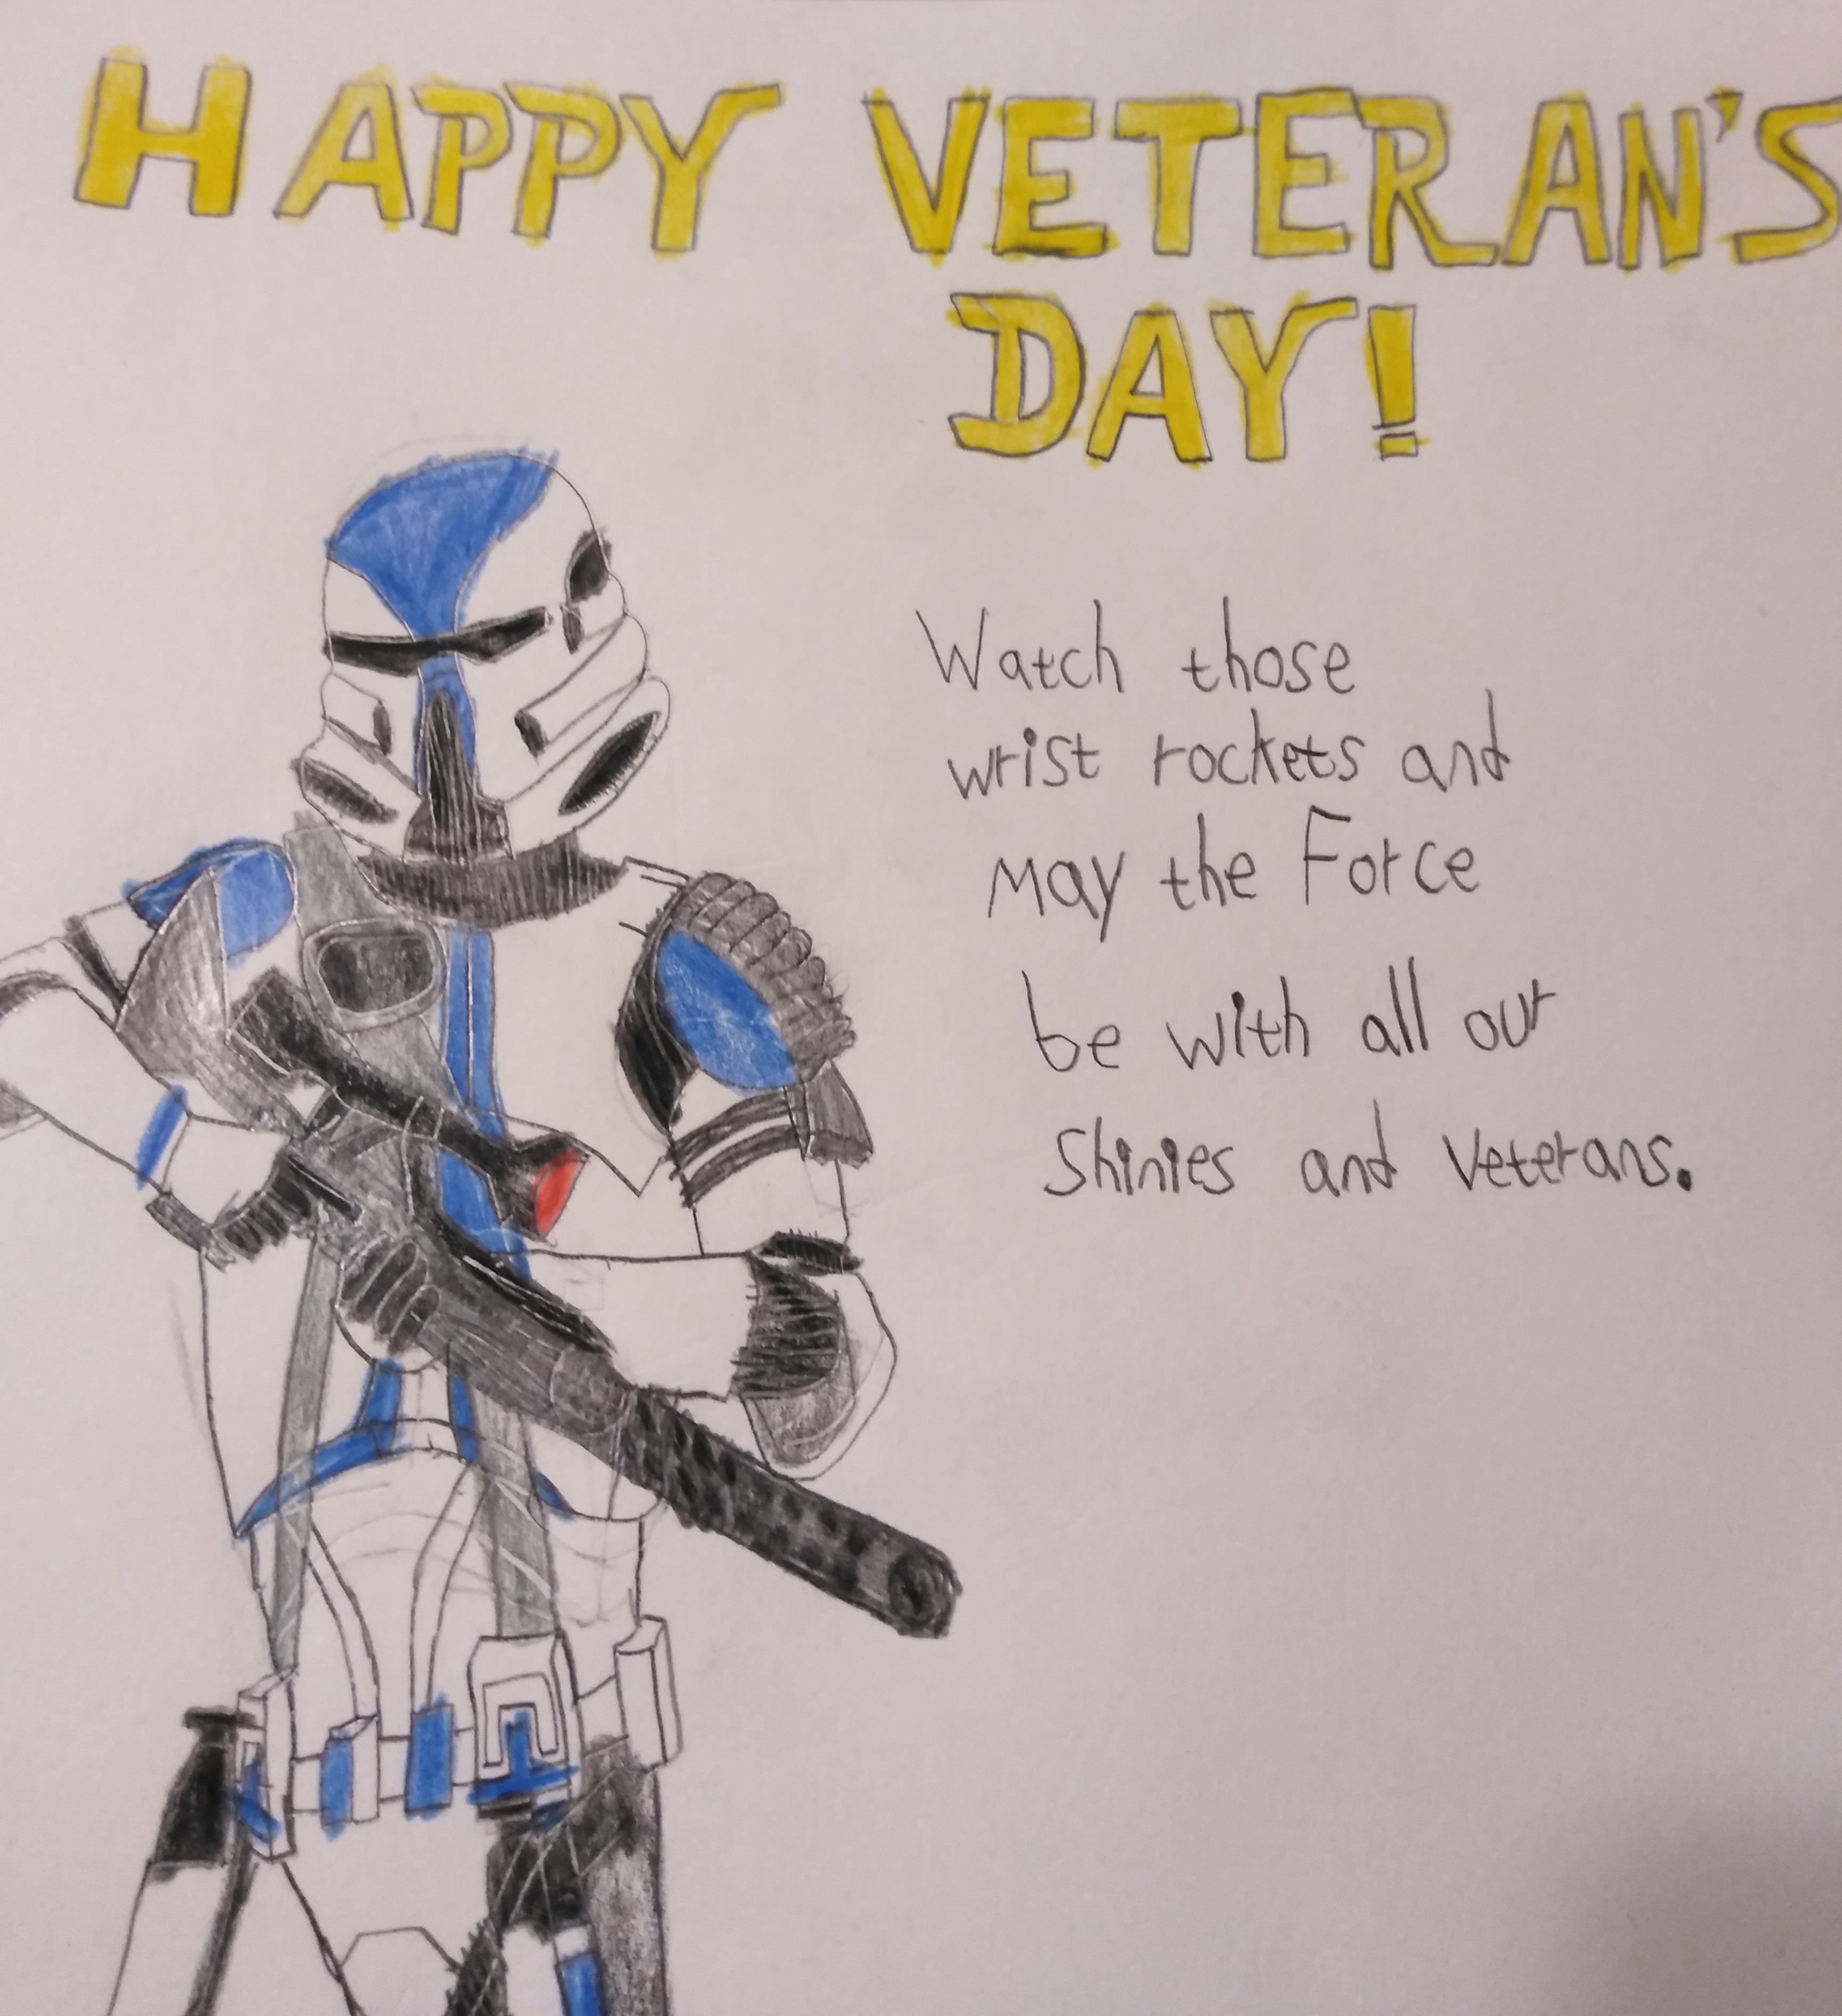 HAPPY VETERAN'S
DAY!
Watch those
wrist rockets and
may the Force
be with all our
Shinies and Veterans.